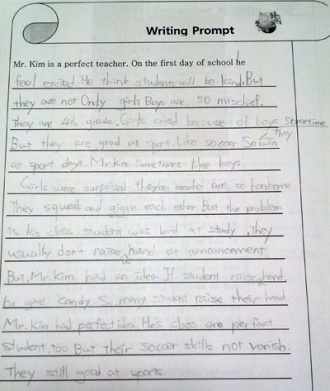 Writing Prompt
Mr. Kim is a perfect teacher. On the first day of school he
feel excited He think students will be kind. But
they are not Only girls Boys are so mischief.
They are 4th grade. Girls cried because of boys Sometime
But they are good at sport. Like soccer So win
they
at sport days. Mr. Kim sometimes like boys.
Girls were surprised their teacher are so handsome
They squeak and giggle each other But the problem
Is his class student was bad at study. They
usually don't raise hand at announcement
But, Mr. Kim had an idea If student raise hand
he gave Kandy So, many student raise their hand
Mr. Kim had perfect idea. He's class are perfect
student, too But their soccer skills not vanish.
They still good at sports.